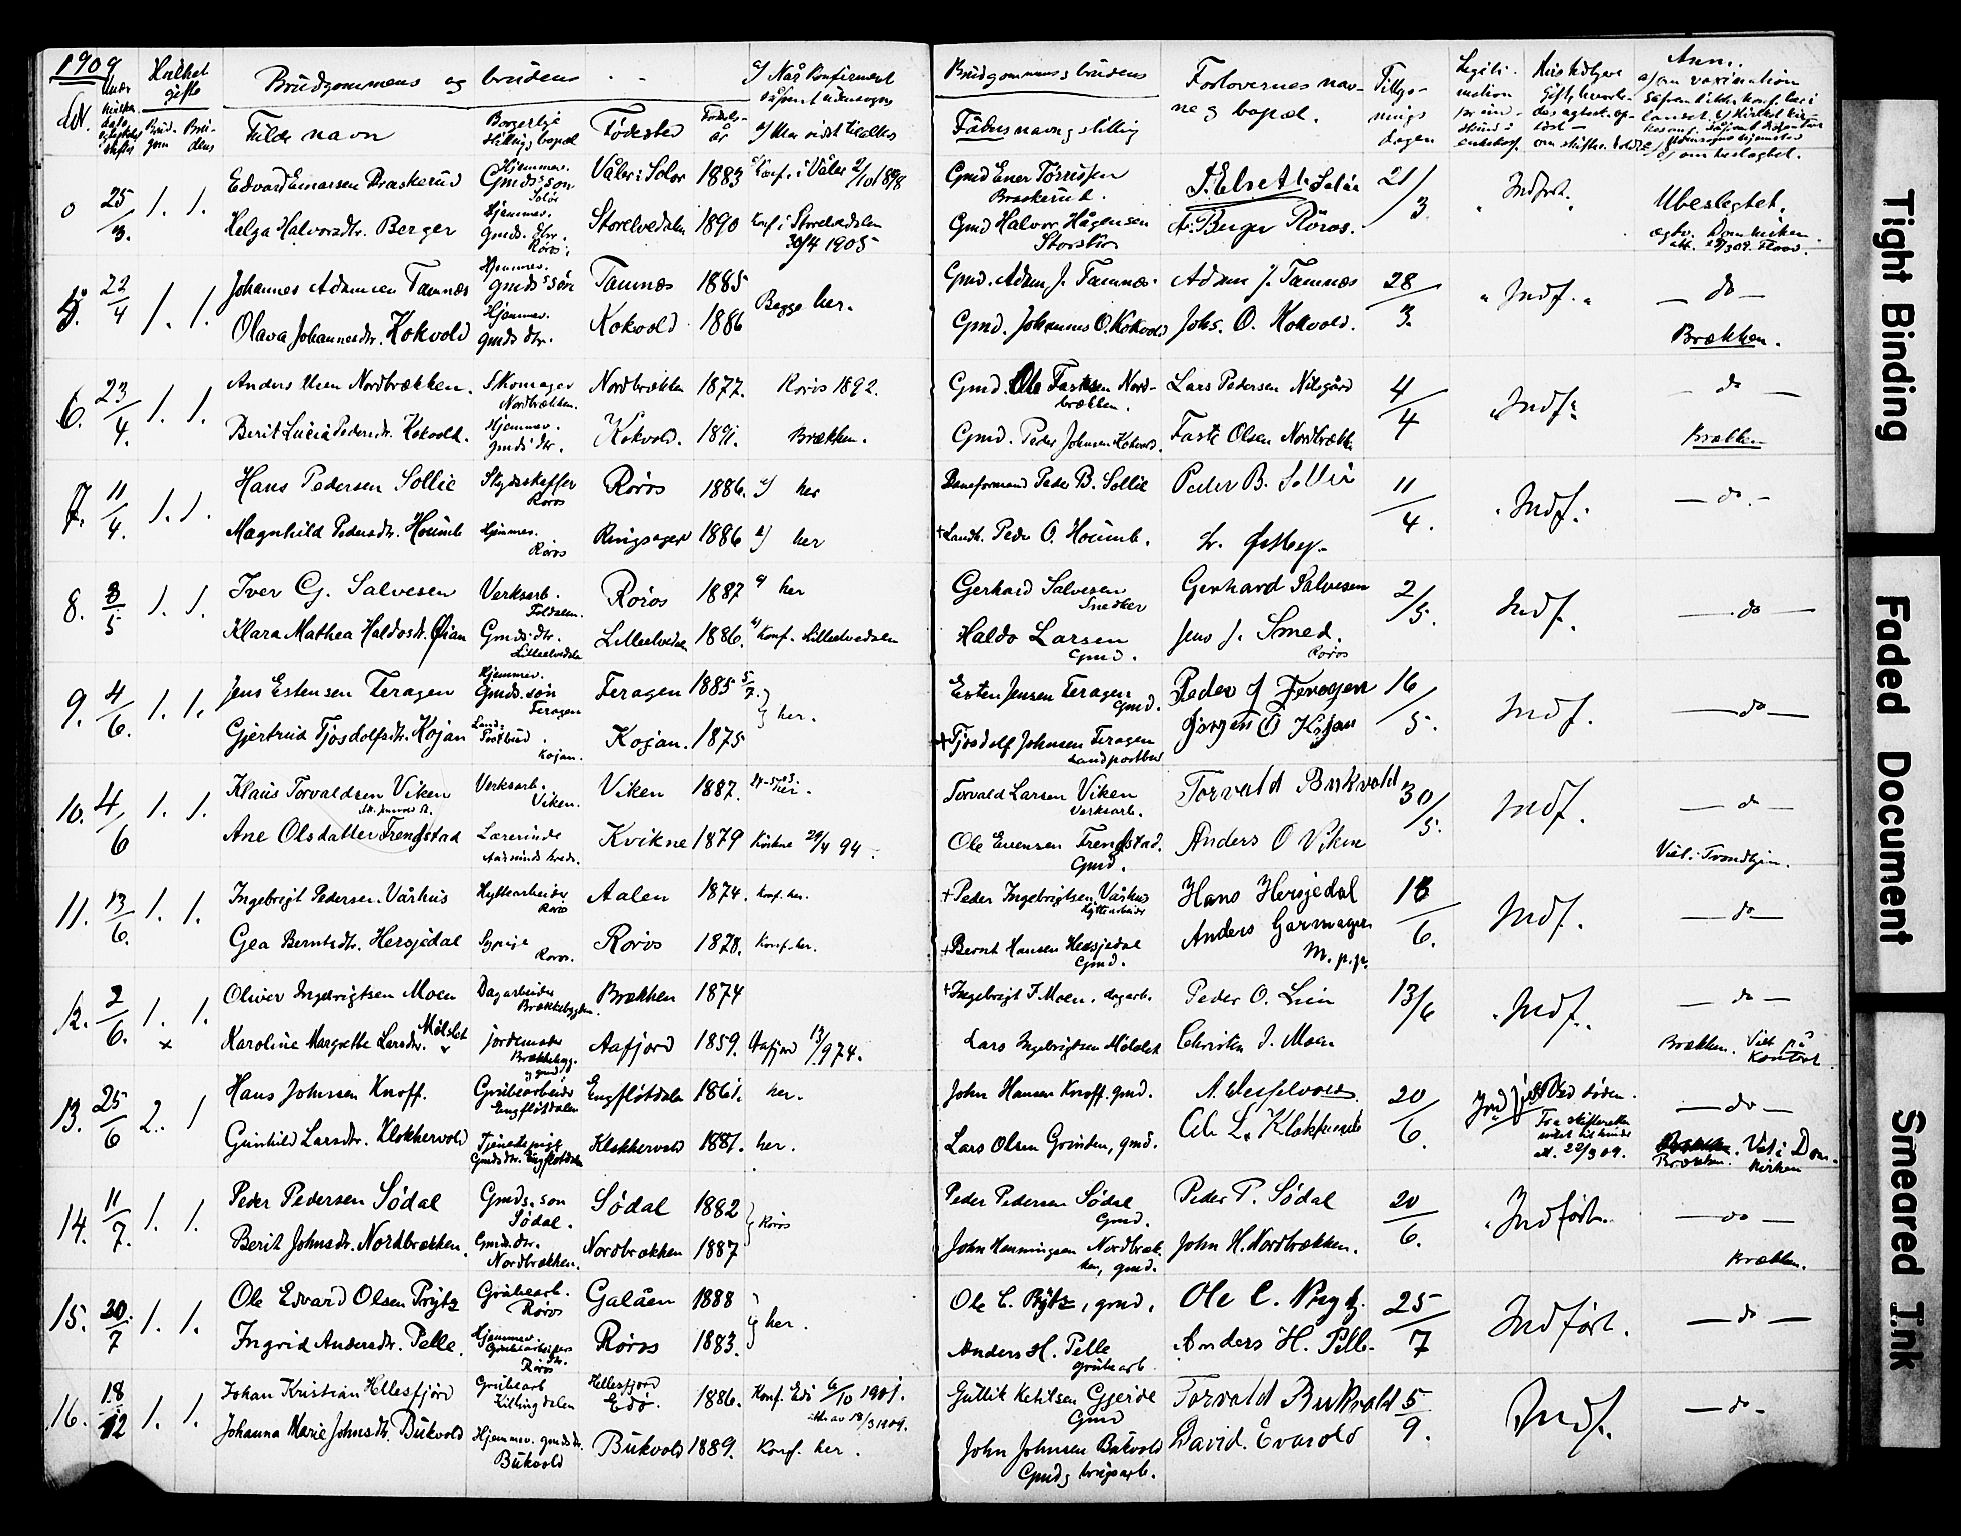 1909
Brudgommens og brudens
Fulde navn
Fødested
Brudgommens & brudens
Fædres navn & stilling
Forlovernes navne & bopæl.
25/3. 1. 1. Edvard Emersen Braskerud Gmds. søn Våler i Solør 1883 Konf. i Våler 2/10 1898 Gmd Ener Tørrissen Braskerud. 21/3. Indført. Ubeslegtet.
Helga Halvorsdtr. Berger Hjemmev. gmds. dtr. Røros. Storelvedalen 1890 Konf. i Storelvedalen 30/4 1905 Gmd Halvor Hågensen A. Berger Røros.
5. 22/4 1. 1. Johannes Adamsen Tamnes Hjemmev. gmds søn Tamnes 1885 Begge her. Gmd. Adam J. Tamnes. Adam J. Tamnes 28/3. Indf. do
Olava Johannesdtr. Kokvold Hjemmev. gmds dtr. Kokvold 1886 Gmd. Johannes O. Kokvold Johs. O. Kokvold. Brækken.
6. 23/4. 1. 1. Anders Olsen Nordbrækken. Skomager Nordbrækken. Nordbrækken 1877. Røros 1892. Gmd. Ole Fastesen Nordbrækken. Lars Pedersen Nilsgård 4/4 Indf. do
Berit Lucia Pedersdtr. Kokvold. Hjemmev. gmds dtr. Kokvold. 1891. Brækken. Gmd. Peder Johnsen Kokvold. Faste Olsen Nordbrækken Brækken
7. 11/4. 1. 1. Hans Pedersen Sollie Røros Røros 1886. her Peder B. Sollie Peder B. Sollie 11/4. Indf. do
Magnhild Pedersdtr. Houmb Hjemmev. Røros Ringsager 1886 her Landh. Peder O. Houmb. Østbye
8. 3/5 1. 1. Iver G. Salvesen Verksarb. Foldalen. Røros 1887 her Gerhard Salvesen Snedker Gerhard Salvesen 2/5. Indf. do
Klara Mathea Haldosdtr. Øian Gmds. dtr. Lilleelvedalen Lilleelvedalen 1886. Konf. Lilleelvedalen Haldo Larsen Gmd. Jens J. Smed. Røros
9. 4/6. 1. 1. Jens Estensen Feragen Hjemmev. Gmds. søn Feragen Feragen 1885 her. Esten Jensen Feragen Gmd. Peder J Feragen 16/5. Indf. do
Gjertrud Tjosdolfsdtr. Kojan Landpostbud. Kojan. Kojan. 1875 †Tjosdolf Johnsen Feragen Landpostbud Jørgen O Kojan
10. 4/6 1. 1. Klaus Torvaldsen Viken Verksarb. Viken. Viken 1887. her. Torvald Larsen Viken Verksarb. Torvald Bukvold 30/5. Indf. do
Ane Olsdatter Frengstad Lærerinde Kvikne 1879 Kvikne 29/4 94. Ole Evensen Frengstad. Gmd. Anders O Viken Viet i Trondhjem.
11. 13/6. 1. 1. Ingebrigt Pedersen Vårhus Hyttearbeider Røros Aalen 1874. Konf. her. †Peder Ingebrigtsen Vårhus hyttearbeider Hans Hersjedal 13/6. Indf. do
Gea Berntsdtr. Hersjedal Sypige Røros. Røros 1878. Konf. her. †Bernt Hansen Hersjedal Gmd. Anders Garmager M. p. p.
12. 2/6. 1. 1. Oliver Ingebrigtsen Moen Dagarbeider Brækkebygden. Brækken 1874 †Ingebrigt J. Moen. dagarb. Peder O. Lien 13/6 Indf. do
Karoline Margrethe Larsdtr. Målslet jordemoder Aafjord 1859. Aafjord 13/9 74. Lars Ingebrigtsen Målslet Christen J. Moen Brækken. Viet på kontoret
13. 25/6 2. 1 Hans Johnsen Knoff. Grubearbeider Engfløtdalen Engfløtdalen 1861. her. John Hansen Knoff. gmd. 20/6. do
Gunhild Larsdtr. Klokkervold Tjenestepige Gmds dtr. Engfløtdalen Klokkervold 1881. her. Lars Olsen Grinden, gmd. Brækken. Viet i Domkirken
14. 11/7. 1. 1. Peder Pedersen Sødal Gmds. søn Sødal. Sødal 1882 Røros Peder Pedersen Sødal Gmd. Peder P. Sødal 20/6. Indført. do
Berit Johnsdtr. Nordbrækken. Gmds. dtr. Nordbrækken. Nordbrækken 1887 John Henningsen Nordbrækken, gmd. John H. Nordbrækken. Brækken.
15. 20/7 1. 1. Ole Edvard Olsen Prytz Grubearb. Røros Galåen 1888 her. Ole C. Prytz, gmd. Ole C. Prytz. 25/7 Indført. do
Ingrid Andersdtr. Pelle. Hjemmev. Grubearbeiders dtr. Røros Røros 1883. Anders H. Pelle grubearb. Anders H. Pelle
16. 18/12 1. 1. Johan Kristian Hellesfjord Grubearb Killingdalen Hellesfjord Edø. 1886. Konf. Edø 6/10 1901. Gullik Ketilsen Gjerde Gmd Torvald Bukvold 5/9. Indf. do
Johanna Marie Johnsdtr. Bukvold Hjemmev. gmds dtr. Bukvold Bukvold 1889. Konf. her. John Johnsen Bukvold Gmd & brugsarb. David Evavold
Tight Binding
Faded Document
Smeared Ink